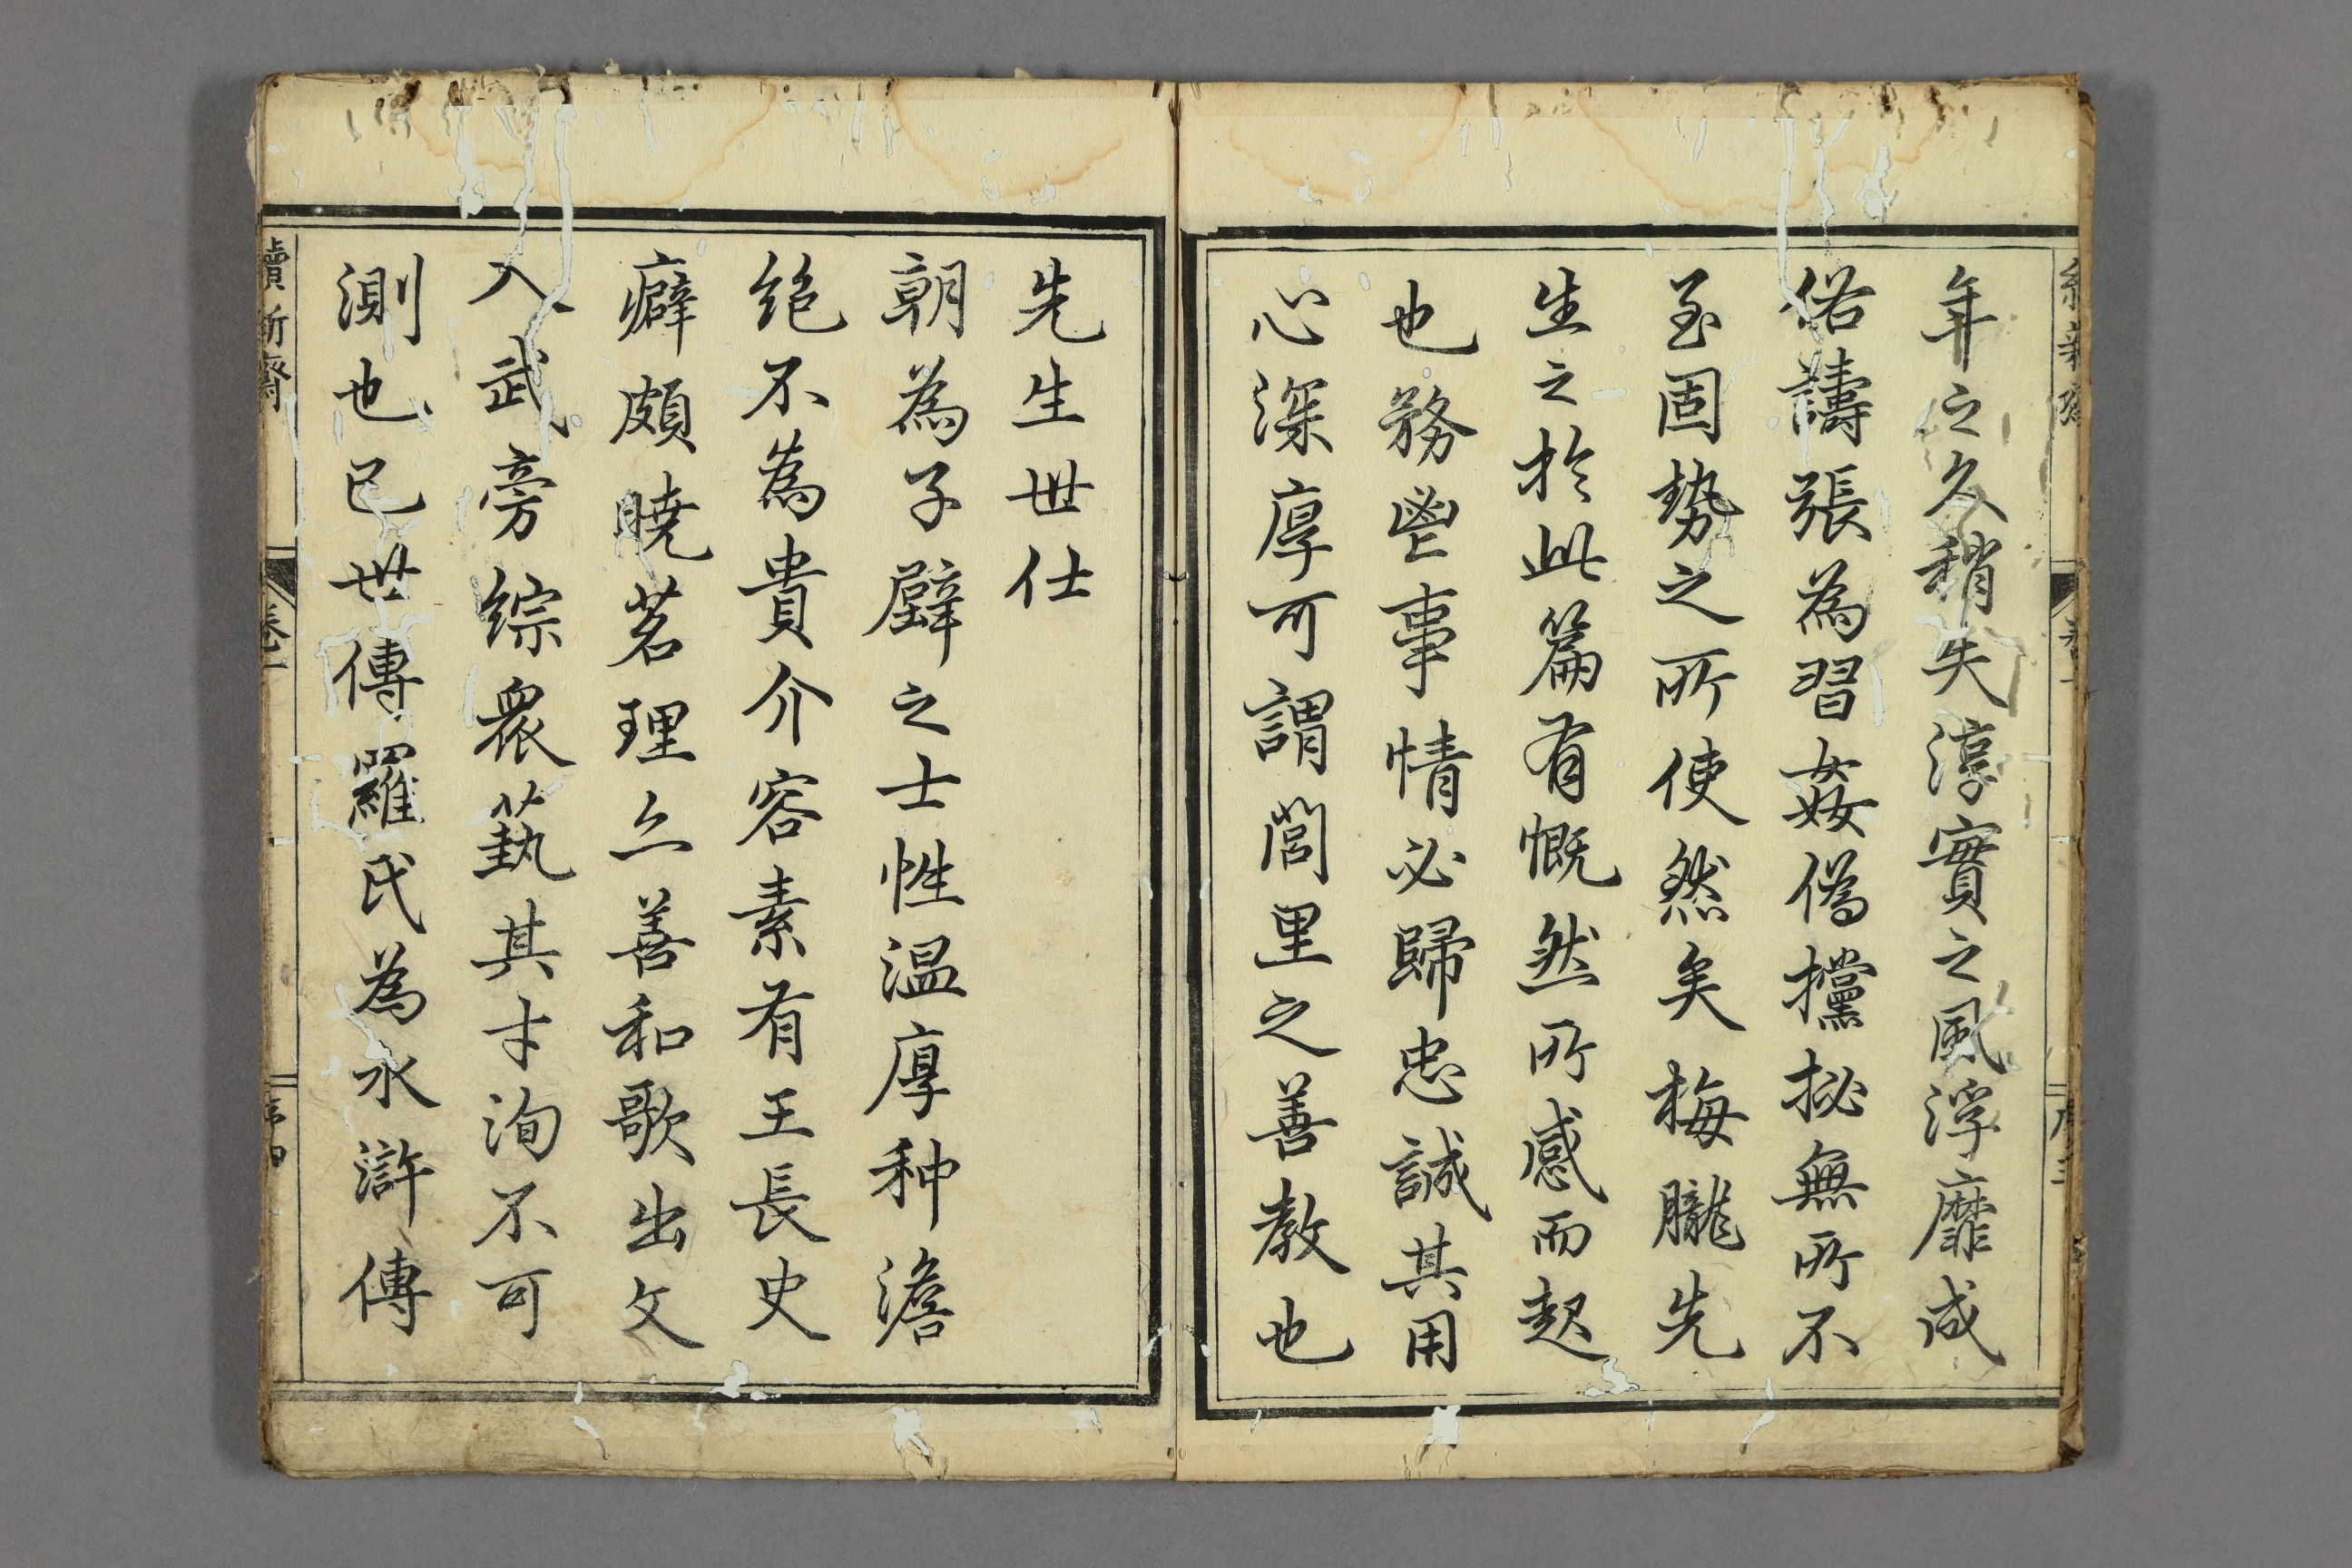 年之久稍失淳實之風浮靡成
俗譸張為習姦偽攩挐無所不
至固勢之所使然矣梅朧先
生之於此篇有慨然所感而起
也務鬯事情必歸忠誠其用
心深厚可謂閭里之善教也
先生世仕
朝為子壁之士性温厚种澹
絶不為貴介容素有王長史
癖頗曉茗理亠善和歌出文
入武旁綜衆藝其才洵不可
測也已世傳羅氏為水滸傳
續新齋
卷一